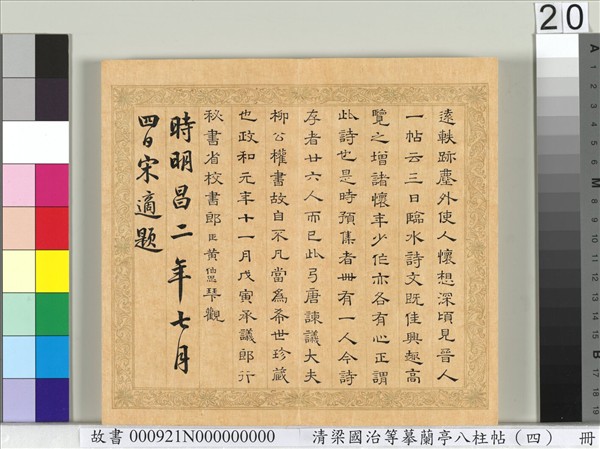 遠軼跡塵外使人懷想深頃見晉人
一帖云三日臨水詩文既佳興趣高
覽之增諸懷年少作亦各有心正謂
此詩也是時預集者卌有一人今詩
存者廿六人而已此弓唐諫議大夫
柳公權書故自不凡當為希世珍藏
也政和元年十一月戊寅承議郎行
秘書省校書郎臣黃伯思觀
時明昌二年七月
四日宋適題
20
A 1 2 3 4 5 6 7 8 9 10 11 M 12 13 14 15 B 17 18 19
故書 000921N000000000 清梁國治等摹蘭亭八柱帖（四） 冊